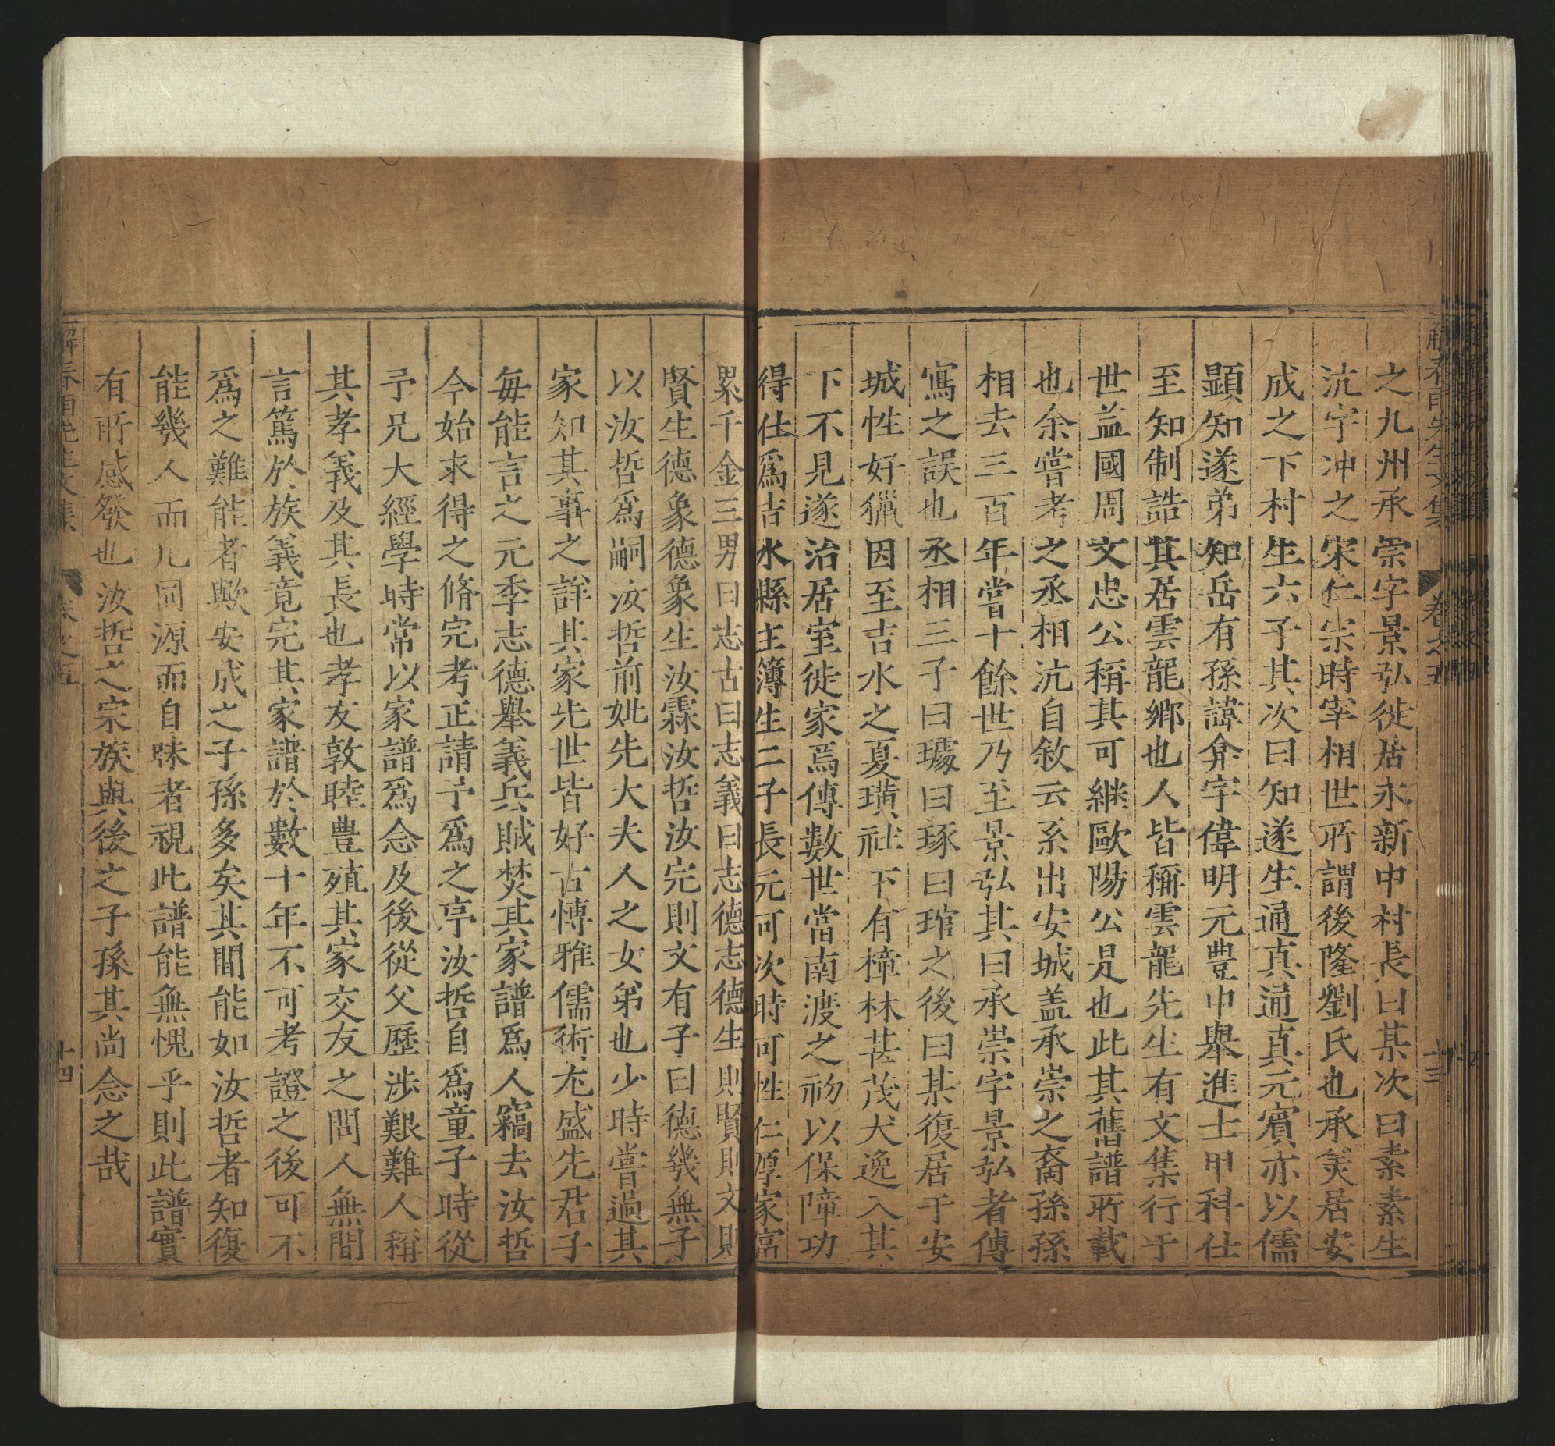 解春雨先生文集
卷之五
十三
之九州承崇字景弘徙居永新中村長曰某次曰素素生
沆字冲之宋仁宗時宰相世所謂後隆劉氏也承美居安
成之下村生六子其次曰知遂生通真通真元賓亦以儒
顯知遂弟知岳有孫諱弇字偉明元豊中舉進士甲科仕
至知制誥其居雲龍鄉也人皆稱雲龍先生有文集行于
世益國周文忠公稱其可継歐陽公是也此其舊譜所載
也余嘗考之丞相沆自敘云系出安城盖承崇之裔孫孫
相去三百年嘗十餘世乃至景弘其曰承崇字景弘者傳
寫之誤也丞相三子曰璩曰琢曰琯之後曰某復居于安
城性好獵因至吉水之夏璜社下有樟林甚茂犬逸入其
下不見遂治居室徙家焉傳數世當南渡之初以保障功
得仕爲吉水縣主簿生二子長元可次時可性仁厚家富
累千金三男曰志古曰志義曰志德志德生則賢則文則
賢生德象德象生汝霖汝哲汝完則文有子曰德幾無子
以汝哲爲嗣汝哲前妣先大夫人之女弟也少時嘗過其
家知其事之詳其家先世皆好古愽雅儒術尤盛先君子
每能言之元季志德舉義兵賊焚其家譜爲人竊去汝哲
今始求得之脩完考正請予爲之序汝哲自爲童子時從
予兄大經學時常以家譜爲念及後從父歷涉艱難人稱
其孝義及其長也孝友敦睦豊殖其家交友之間人無間
言篤於族義竟完其家譜於數十年不可考證之後可不
爲之難能者歟安成之子孫多矣其間能如汝哲者知復
能幾人而凡同源而自昧者視此譜能無愧乎則此譜實
有所感發也汝哲之宗族與後之子孫其尚念之哉
解春雨先生文集
卷之五
十四